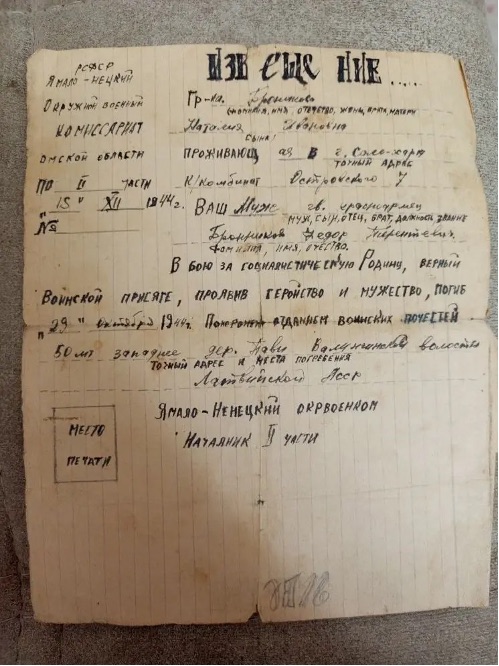 РСФСР
Ямало-Нецкий
Окружной военный
комиссариат
Омской области
По II части
"15" XII 1944 г.
№
ИЗВЕЩЕНИЕ.....
Гр-ка. Бронников
(фамилия, имя, отчество, жены, брата, матери
Наталия Ивановна
сына)
проживающ ая в г. Сале-харн
точный адрес
К/Комбинат Островского 7
Ваш Муж гв. красноармец
муж, сын, отец, брат, должность звание
Бронников Федор Терентьевич
фамилия, имя, отчество.
В бою за социалистическую Родину, верный
Воинской присяге, проявив геройство и мужество, погиб
"29" октября 1944 г. Похоронен с отданием воинских почестей
50 мт западнее дер. волости
точный адрес и места погребения
Латвийской ССР
Ямало-Ненецкий окрвоенком
Началник II части
Место
печати